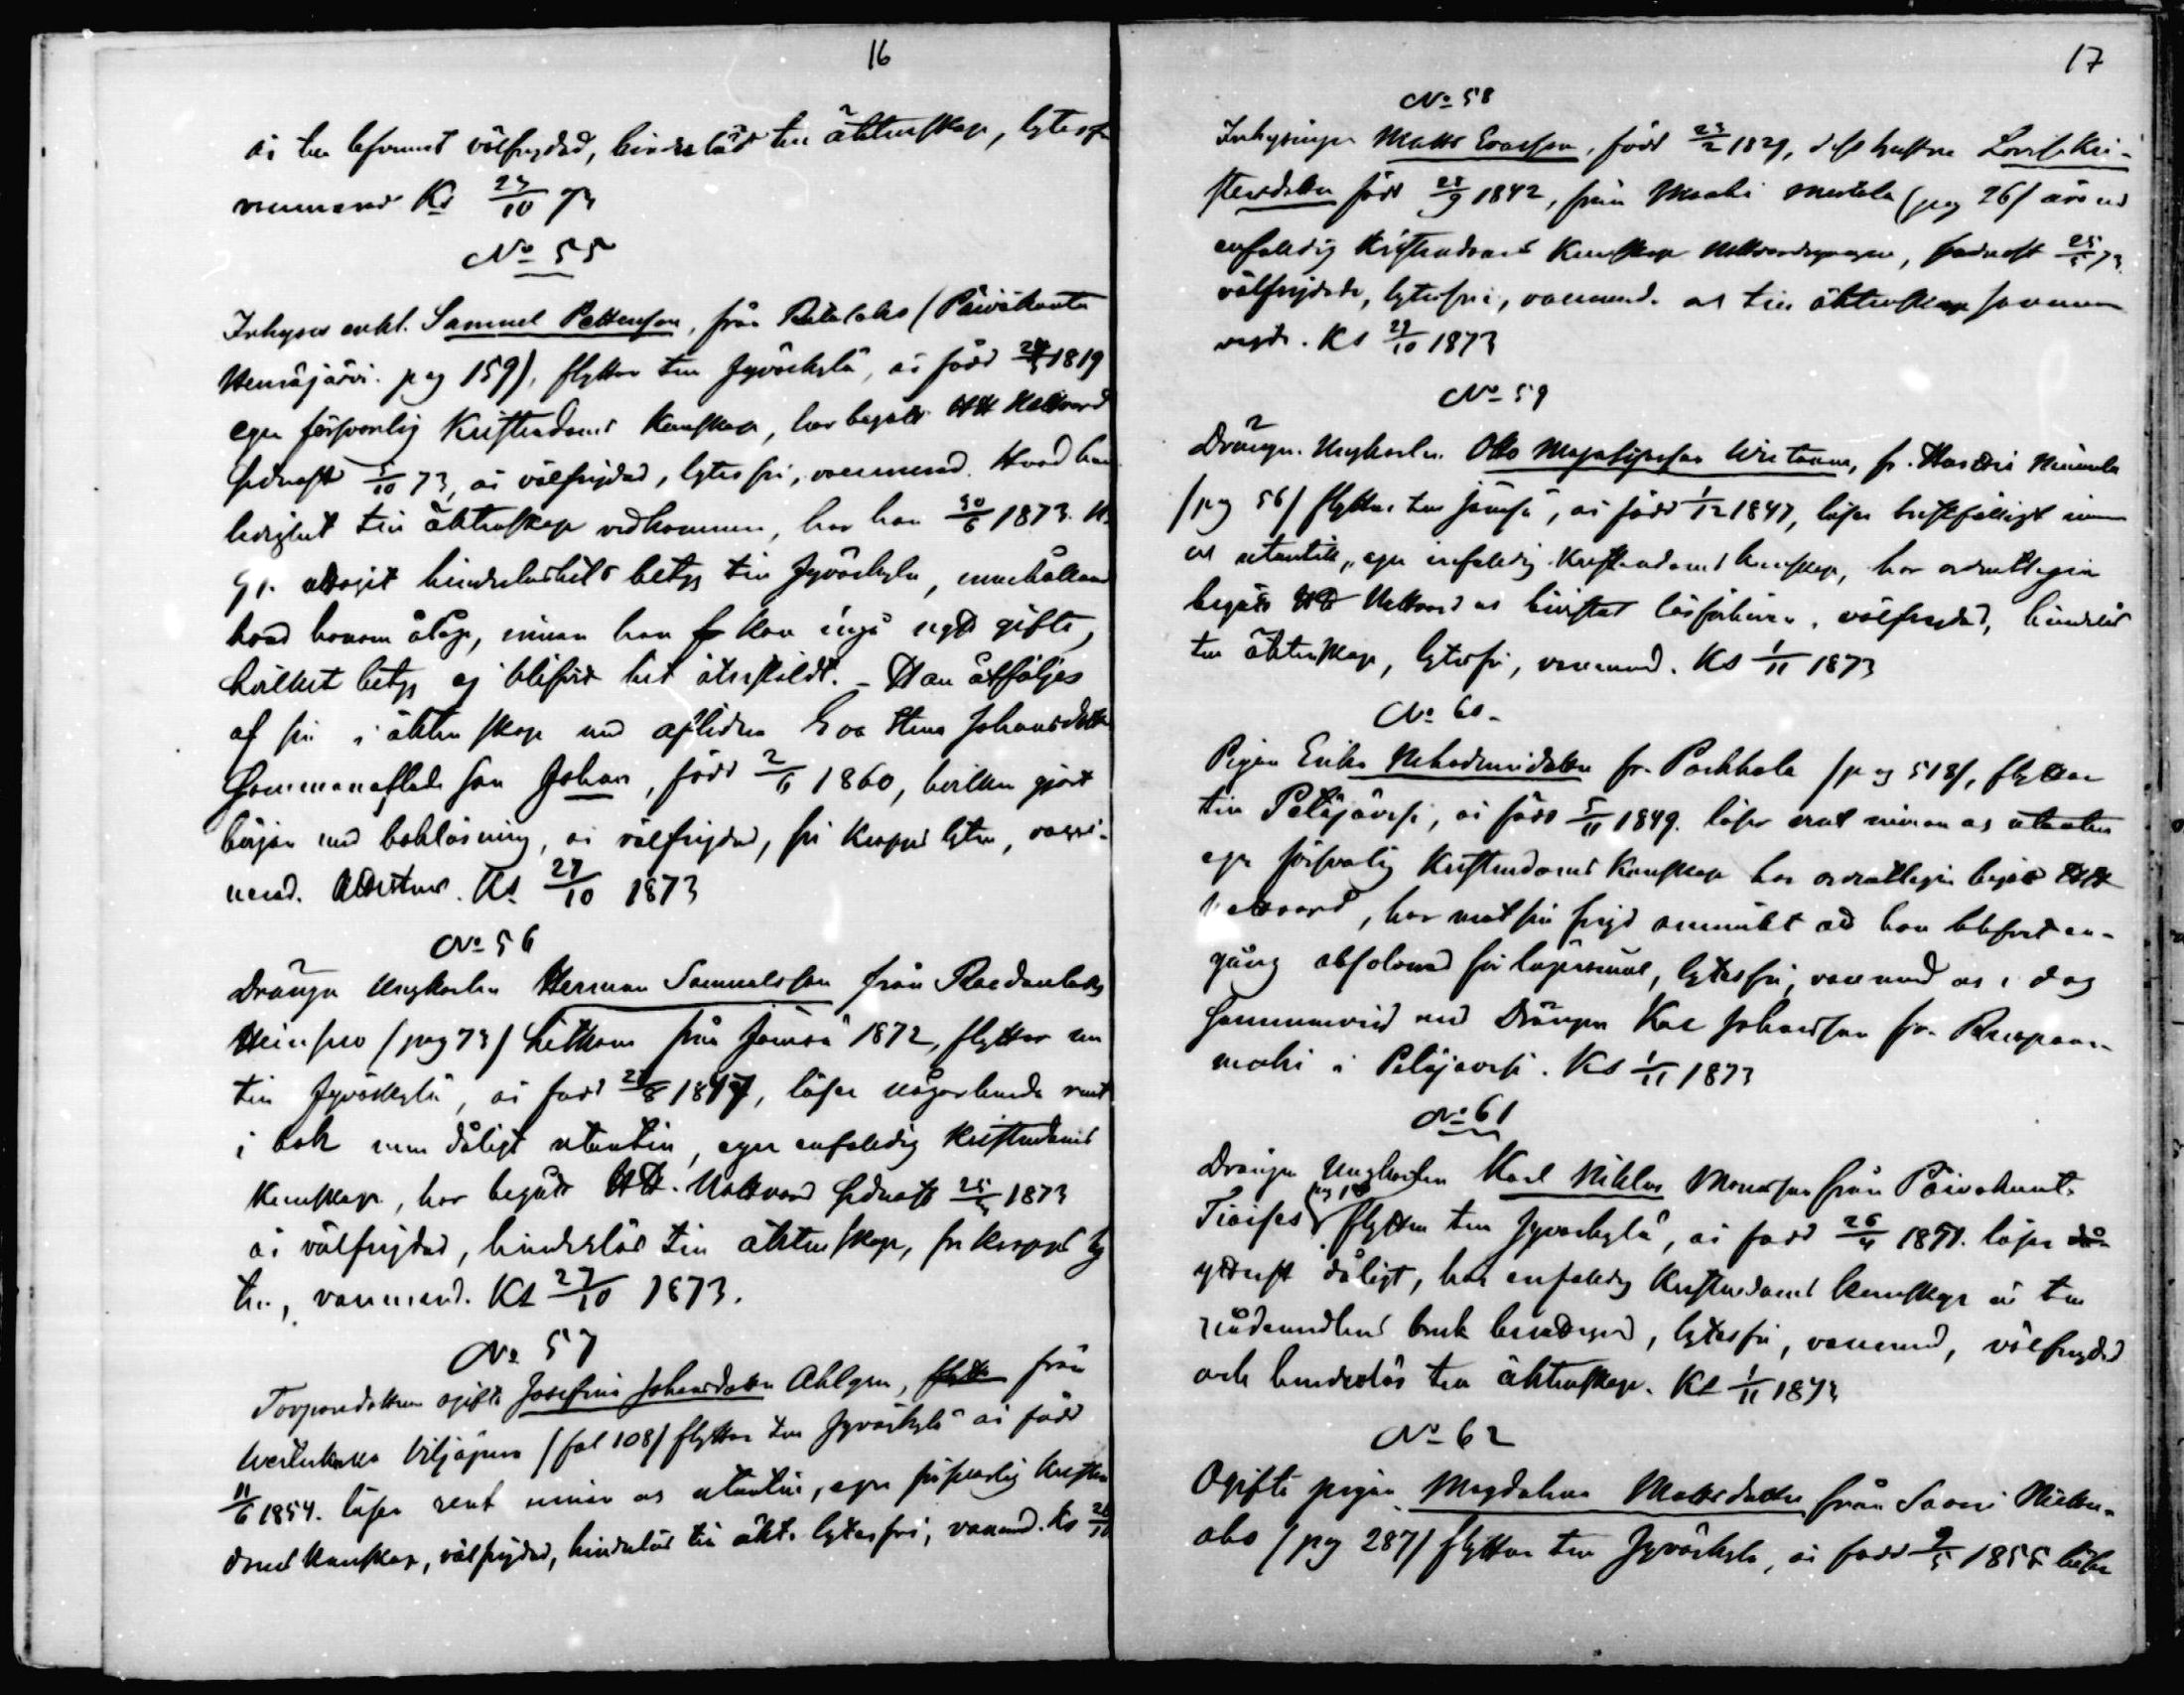 16
är till lefvernet välfrejdad, hinderlös till äktenskap, lytesfri
vaccinerad Ks 27/10 73
No 55
Inhyses enkl. Samuel Pettersson, från Rutalaks (Päiväkunta
Heinäjärvi pag 159), flyttar till Jyväskylä, är född 24/5 1819
eger försvarlig Kristendoms kunskap, har begått HH Nattvard
sednast 5/10 73, är välfrejdad, lytesfri, vaccinerad. Hvad han
ledighet till äktenskap vidkommer, har han 30/6 1873.
uttagit hinderlöshets betyg till Jyväskylä, innehållande
hvad honom åligger, innan han kan ingå nytt gifte,
hvilket betyg ej blifvit hit återstäldt. – Han åtföljes
af sin i äktenskap med aflidna Eva Stina Johansdotter
sammanaflade son Johan, född 2/6 1860, hvilken gjort
början med bokläsning, är välfrejdad, fri kropps lyten, vacci-
nerad. Attesteras. Ks 27/10 1873
No 56
Drängen Ungkarlen Herman Samuelsson från
(pag 73) hitkom från Jämsä 1872, flyttar nu
till Jyväskylä, är född 27/8 1847, läser någorlunda rent
i bok men dåligt utantill, eger enfaldig kristendoms
kunskap, har begått HH. Nattvard sednast 25/5 1873
är välfrejdad, hinderlös till äktenskap, fri kropps ly
ten, vaccinerad. Ks 27/10 1873.
No 57
Torparedottren ogifta Josefina Johansdotter Ahlgren, från
(fol 108) flyttar till Jyväskylä är född
11/6 1854. läser rent innan och utantill, eger försvarlig kristen
doms kunskap, välfrejdad, hinderlös till äkt. lytesfri, vaccinerad. Ks 28/10
17
No 58
Inhysingen Matts Evasson, född 23/2 1829, dess hustru Lovisa Kri-
stersdotter född 28/9 1842, från (pag 26) äro med
enfaldig Kristendoms kunskap Nattvardsgångare, sednast 25/5 73.
välfrejdade, lytesfri, vaccinerad. och till äktenskap samman
vigde. Ks 29/10 1873
No 59
Drängen Ungkarlen Otto fr.
(pag 56) flyttar till Jämsä, är född 1/12 1847, läser bristfälligt innan
och utantill, eger enfaldig kristendoms kunskap, har ordentligen
begått HH Nattvard och bevistat läsförhören, välfrejdad, hinderlös
till äktenskap, lytesfri, vaccinerad. Ks 1/11 1873
No 60
Pigan Erika fr. Pohkala (pag 518), flyttar
till Petäjävesi, är född 5/11 1849. läser rent innan och utantill
eger försvarlig kristendoms kunskap har ordentligen begått HH
Nattvard, har mot sin frejd anmärkt att hon blifvit en-
gång absolverad för lägersmål, lytesfri, vaccinerad och i dag
sammanvigd med Drängen Karl Johansson fr.
i Petäjävesi. Ks 1/11 1873
No 61
Drängen Ungkarlen Karl Niklas från Päiväkunta
flyttar till Jyväskylä, är född 26/4 1851. läser
ytterst dåligt, har enfaldig Kristendoms kunskap är till
nådemedlens bruk berättigad, lytesfri, vaccinerad, välfrejdad
och hinderlös till äktenskap. Ks 1/11 1873
No 62
Ogifta pigan Magdalena Mattsdotter från Saari
aho (pag 287) flyttar till Jyväskylä, är född 9/5 1855 läser